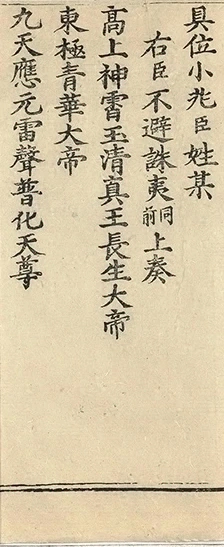 具位小兆臣姓某
右臣不避誅夷同前上奏
高上神霄玉清真王長生大帝
東極青華大帝
九天應元雷聲普化天尊